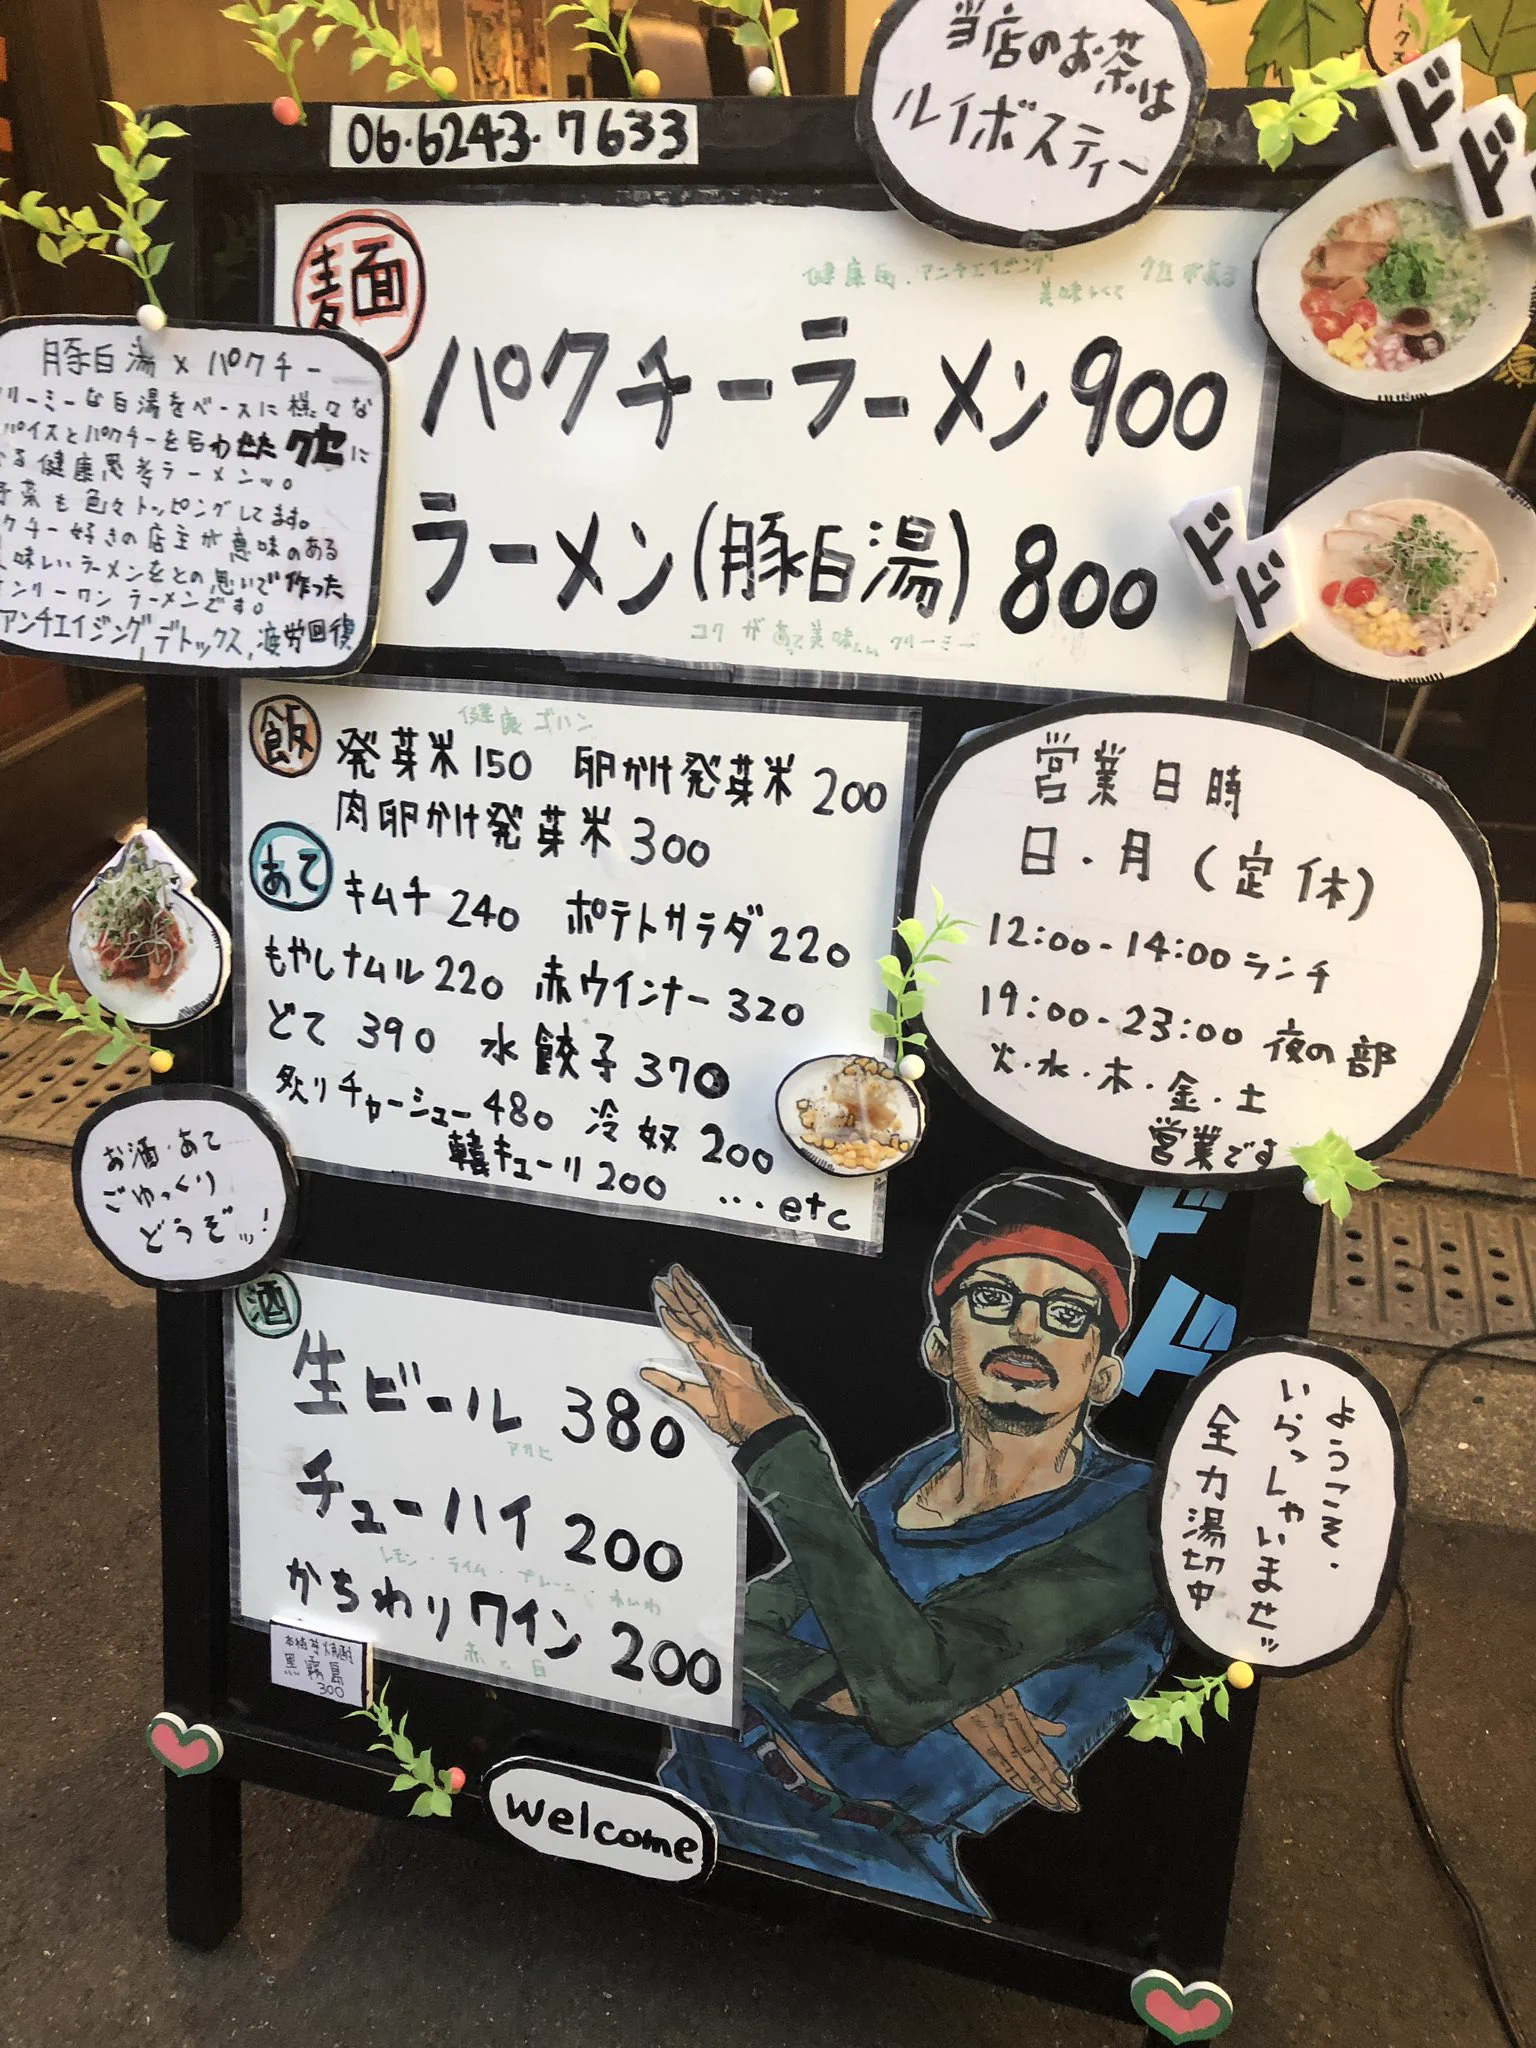 当店のお茶は
ルイボスティー
06.6243.7633
ドド
麺
健康。アンチエイジング
美味しくて クセがある
パクチーラーメン 900
ラーメン(豚白湯) 800
コクがあって美味しい クリーミー
ドド
豚白湯×パクチー
リーミーな白湯をベースに様々な
パイスとパクチーを合わせたクセに
る健康思考ラーメンッ。
野菜も色々トッピングしてます。
クチー好きの店主が意味のある
味しいラーメンをとの思いで作った
ンリーワンラーメンです。
アンチエイジング,デトックス,疲労回復
飯
健康ゴハン
発芽米 150 卵かけ発芽米 200
肉卵かけ発芽米 300
あて
キムチ 240 ポテトサラダ 220
もやしナムル 220 赤ウインナー 320
どて 390 水餃子 370
炙りチャーシュー 480 冷奴 200
韓キューリ 200 …etc
営業日時
日・月(定休)
12:00-14:00 ランチ
19:00-23:00 夜の部
火・水・木・金・土
営業です
お酒・あて
ごゆっくり
どうぞッ!
酒
生ビール 380
アサヒ
チューハイ 200
レモン・ライム・プレーン・
かちわりワイン 200
赤と白
本格芋焼酎
黒霧島
300
ドド
ようこそ・
いらっしゃいませッ
全力湯切中
welcome